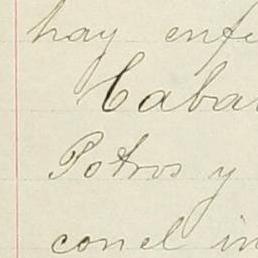 hay enfe
Caba
Potros y
con el in